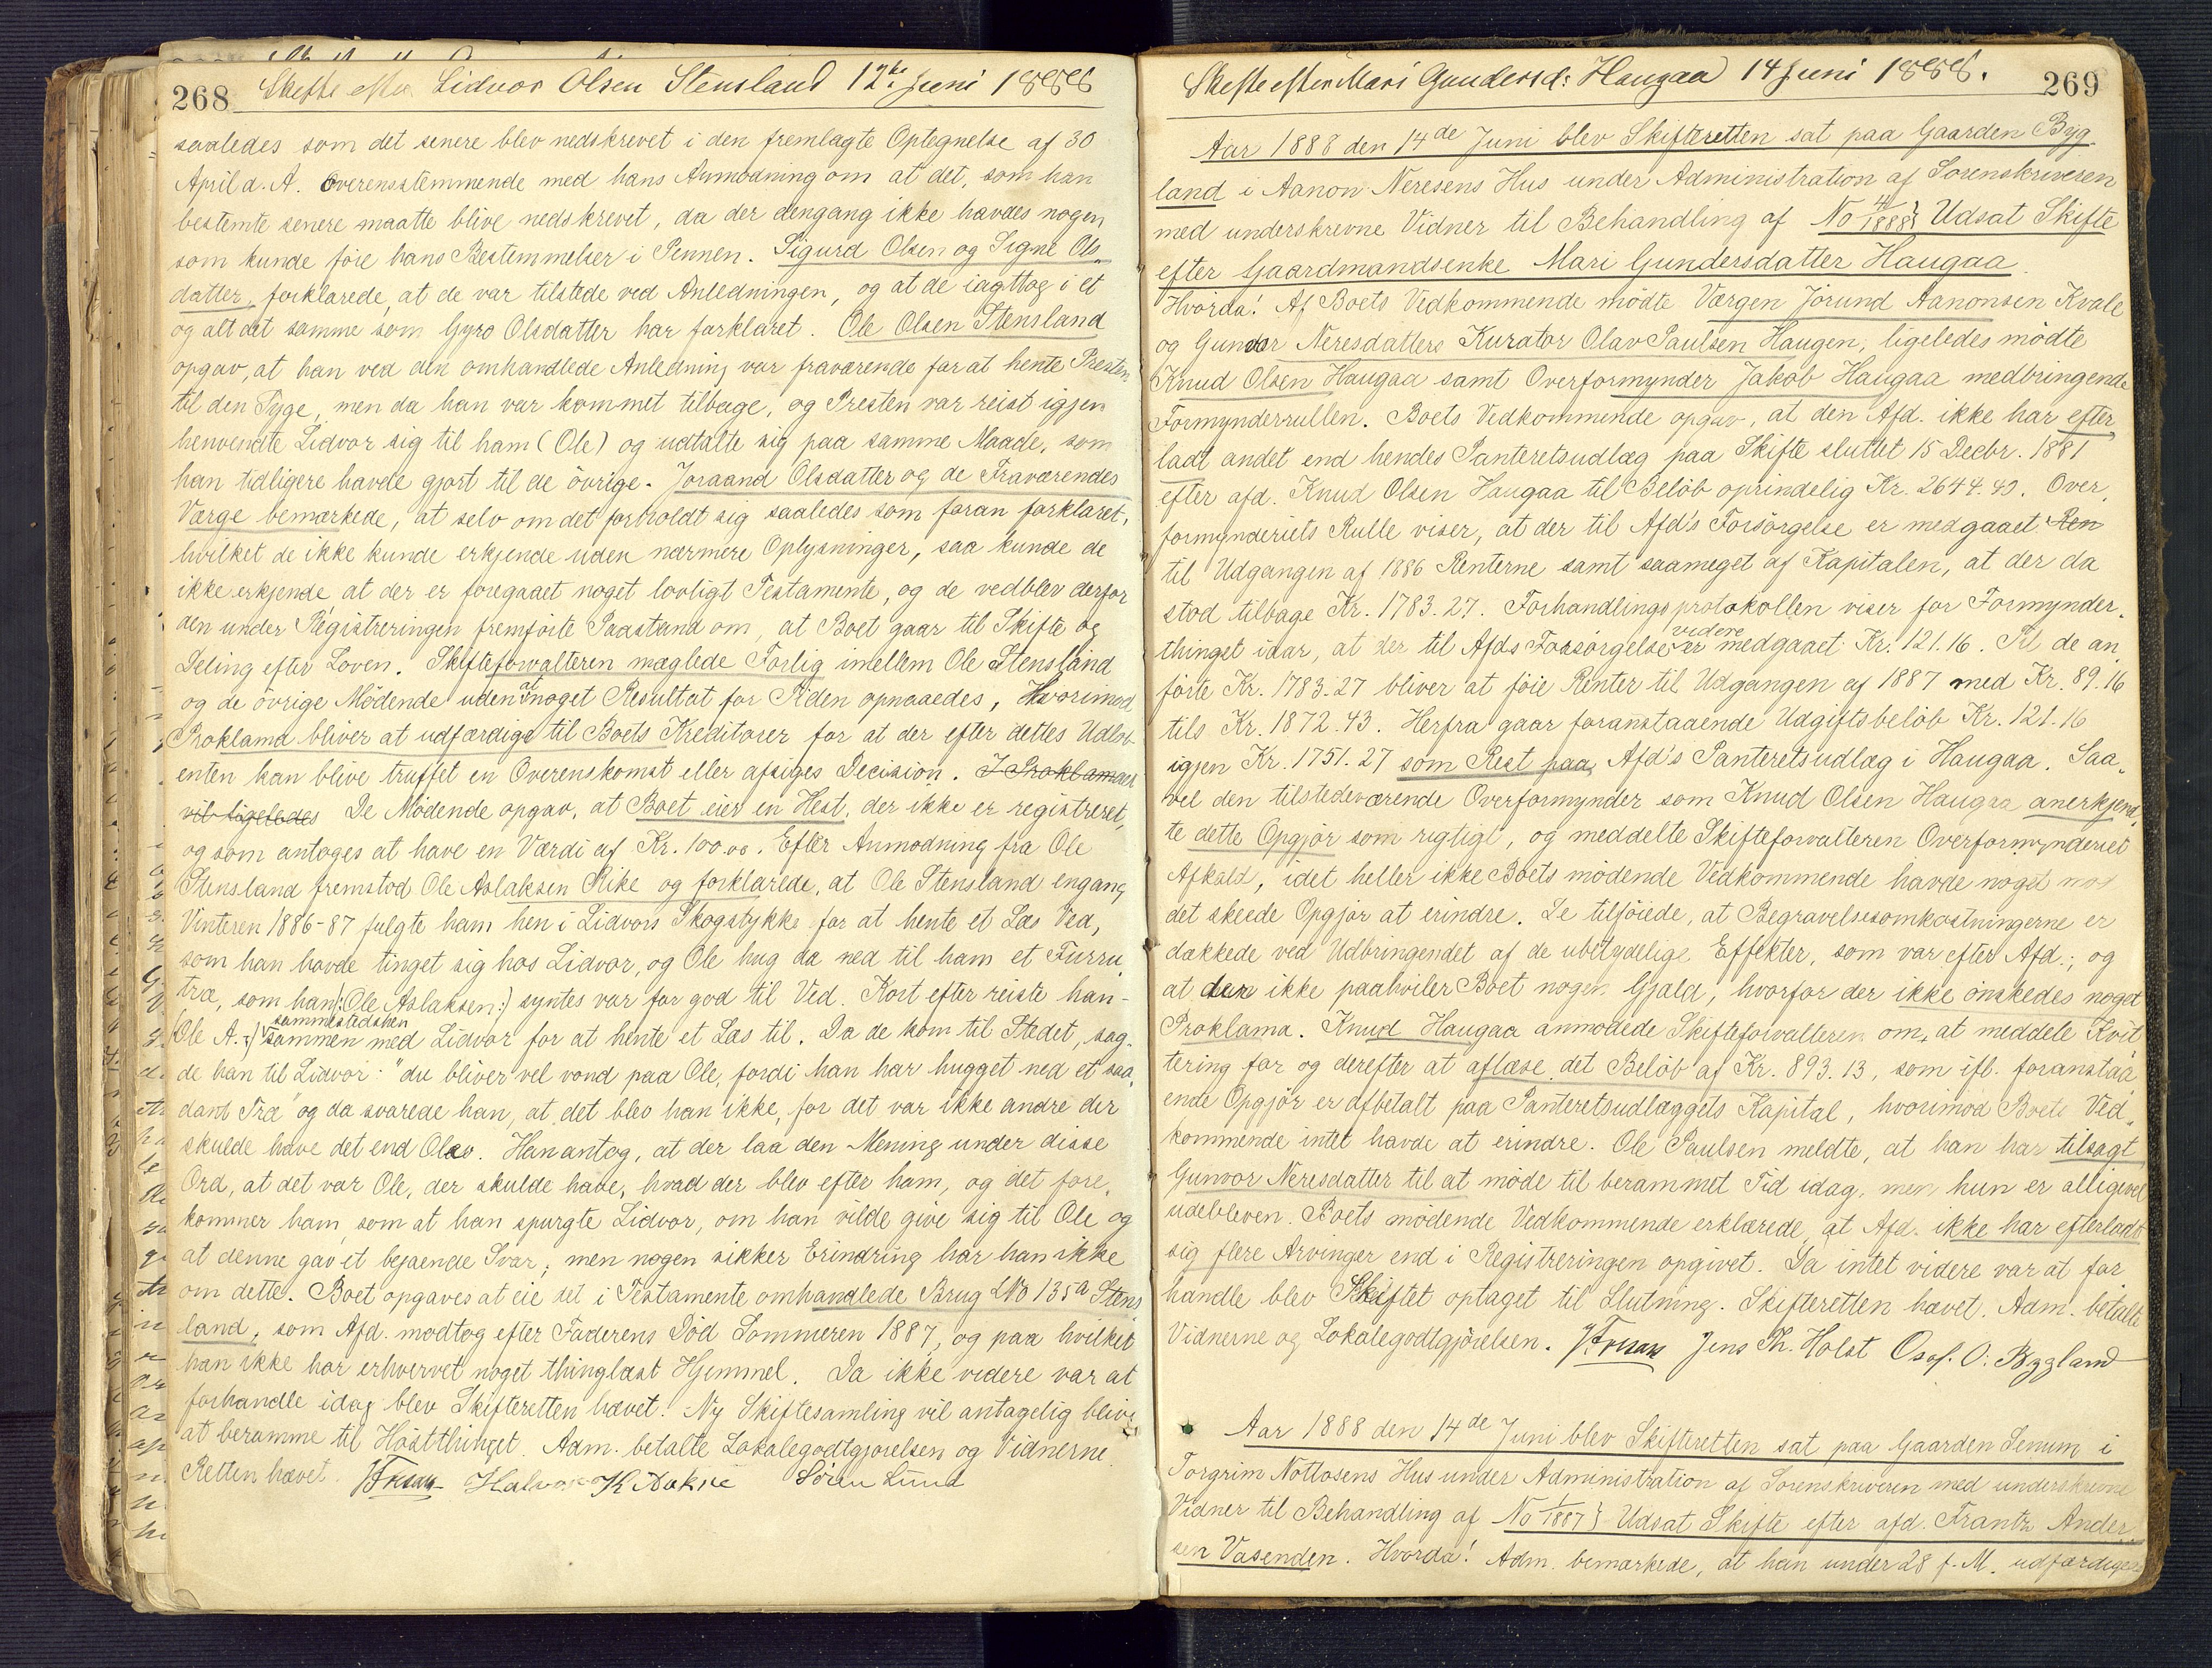 268 Skifte efter Lidvor Olsen Stensland 12te Juni 1888
saaledes som det senere blev nedskrevet i den fremlagte Optegnelse af 30
April d. A. Overensstemmende med hans Anmodning om at det, som han
bestemte senere maatte blive nedskrevet, da der dengang ikke havdes nogen,
som kunde føie hans Bestemmelser i Pennen. Sigurd Olsen og Signe Ols-
datter, forklarede, at de var tilstede ved Anledningen, og at de iagttog i et
og alt det samme som Gyro Olsdatter har forklaret. Ole Olsen Stensland
opgav, at han ved den omhandlede Anledning var fraværende for at hente Presten
til den Syge, men da han var kommet tilbage, og Presten var reist igjen
henvendte Lidvor sig til ham (Ole) og udtalte sig paa samme Maade, som
han tidligere havde gjort til de øvrige. Joraand Olsdatter og de Fraværendes
Værge bemærkede, at selv om det forholdt sig saaledes som foran forklaret,
hvilket de ikke kunde erkjende uden nærmere Oplysninger, saa kunde de
ikke erkjende at der er foregaaet noget lovligt Testamente, og de vedblev derfor
den under Registreringen fremførte Paastand om, at Boet gaar til Skifte og
Deling efter Loven. Skifteforvalteren mæglede Forlig imellem Ole Stensland
og de øvrige Mødende uden at noget Resultat for Tiden opnaaedes, Hvorimod
Proklama bliver at udfærdige til Boets Kreditorer for at der efter dettes Udløb
enten kan blive truffet en Overenskomst eller afsiges Decision. I Proklamaet
vil ligeledes De Mødende opgav, at Boet eier en Hest, der ikke er registreret,
og som antoges at have en Værdi af Kr. 100.00. Efter Anmodning fra Ole
Stensland fremstod Ole Aslaksen Rike og forklarede, at Ole Stensland engang
Vinteren 1886-87 fulgte ham hen i Lidvors Skogstykke for at hente et Læs Ved,
som han havde tinget sig hos Lidvor, og Ole hug da ned til ham et Furru
træ, som han (: Ole Aslaksen :) syntes var for god til Ved. Kort efter reiste han -
sammestedshen
(Ole A. :) sammen med Lidvor for at hente et Læs til. Da de kom til Stedet, sag-
de han til Lidvor: "du bliver vel vond paa Ole, fordi han har hugget ned et saa-
dant Træ" og da svarede han, at det blev han ikke, for det var ikke andre der
skulde have det end Olav. Han antog, at der laa den Mening under disse
Ord, at det var Ole, der skulde have, hvad der blev efter ham, og det fore-
kommer ham, som at han spurgte Lidvor, om han vilde give sig til Ole og
at denne gav et bejaende Svar; men nogen sikker Erindring har han ikke
om dette. Boet opgaves at eie det i Testamente omhandlede Brug LNo 135a Stens-
land, som Afd. modtog efter Faderens Død Sommeren 1887, og paa hvilket
han ikke har erhvervet noget thinglæst Hjemmel. Da ikke videre var at
forhandle idag blev Skifteretten hævet. Ny Skiftesamling vil antagelig blive
at beramme til Høstthinget. Adm. betalte Lokalegodtgjørelsen og Vidnerne.
Retten hævet. Halvor K Søren Lund
Skifte efter Mari Gundersd: Haugaa 14 Juni 1888. 269
Aar 1888 den 14de Juni blev Skifteretten sat paa Gaarden Byg-
land i Aanon Neresens Hus under Administration af Sorenskriveren
med underskrevne Vidner til Behandling af No 4/1888} Udsat Skifte
efter Gaardmandsenke Mari Gundersdatter Haugaa.
Hvorda! Af Boets Vedkommende mødte Værgen Jorund Aanonsen Kvale
og Gunvor Neresdatters Kurator Olav Paulsen Haugen, ligeledes mødte
Knud Olsen Haugaa samt Overformynder Jakob Haugaa medbringende
Formynderrullen. Boets Vedkommende opgav, at den Afd. ikke har efter
ladt andet end hendes Panteretsudlæg paa Skifte sluttet 15 Decbr. 1881
efter afd. Knud Olsen Haugaa til Beløb oprindelig Kr. 2644.40. Over,
formynderiets Rulle viser, at der til Afd's Forsørgelse er medgaaet Ren
til Udgangen af 1886 Renterne samt saameget af Kapitalen, at der da
stod tilbage Kr. 1783.27. Forhandlingsprotokollen viser for Formynder-
thinget iaar, at der til Afds Forsørgelse videre er medgaaet Kr. 121.16. Til de an
førte Kr. 1783.27 bliver at føie Renter til Udgangen af 1887 med Kr. 89.16
tils Kr. 1872.43. Herfra gaar foranstaaende Udgiftsbeløb Kr. 121.16
igjen Kr. 1751.27 som Rest paa Afd's Panteretsudlæg i Haugaa. Saa-
vel den tilstedeværende Overformynder som Knud Olsen Haugaa anerkjend-
te dette Opgjør som rigtigt, og meddelte Skifteforvalteren Overformynderiet
Afkald, idet heller ikke Boets mødende Vedkommende havde noget mod
det skeede Opgjør at erindre. De tilføiede, at Begravelsesomkostningerne er
dækkede ved Udbringendet af de ubetydelige Effekter, som var efter Afd.; og
at der ikke paahviler Boet nogen Gjæld, hvorfor der ikke ønskedes noget
Proklama. Knud Haugaa anmodede Skifteforvalteren om, at meddele Kvit
tering for og derefter at aflæse det Beløb af Kr. 893.13, som ifl. foranstaa
ende Opgjør er afbetalt paa Panteretsudlæggets Kapital, hvorimod Boets Ved-
kommende intet havde at erindre. Ole Paulsen meldte, at han har tilsagt
Gunvor Neresdatter til at møde til berammet Tid idag, men hun er alligevel
udebleven. Boets mødende Vedkommende erklærede, at Afd. ikke har efterladt
sig flere Arvinger end i Registreringen opgivet. Da intet videre var at for
handle blev Skiftet optaget til Slutning. Skifteretten hævet. Adm. betalte
Vidnerne og Lokalegodtgjørelsen. Jens Th. Holst Osuf. O. Byggland
Aar 1888 den 14de Juni blev Skifteretten sat paa Gaarden Senum i
Torgrim Nottosens Hus under Administration af Sorenskriveren med underskrevne
Vidner til Behandling af No 1/1887} Udsat Skifte efter afd. Frantz Ander
sen Vasenden. Hvorda! Adm. bemærkede, at han under 28 f. M. udfærdigede